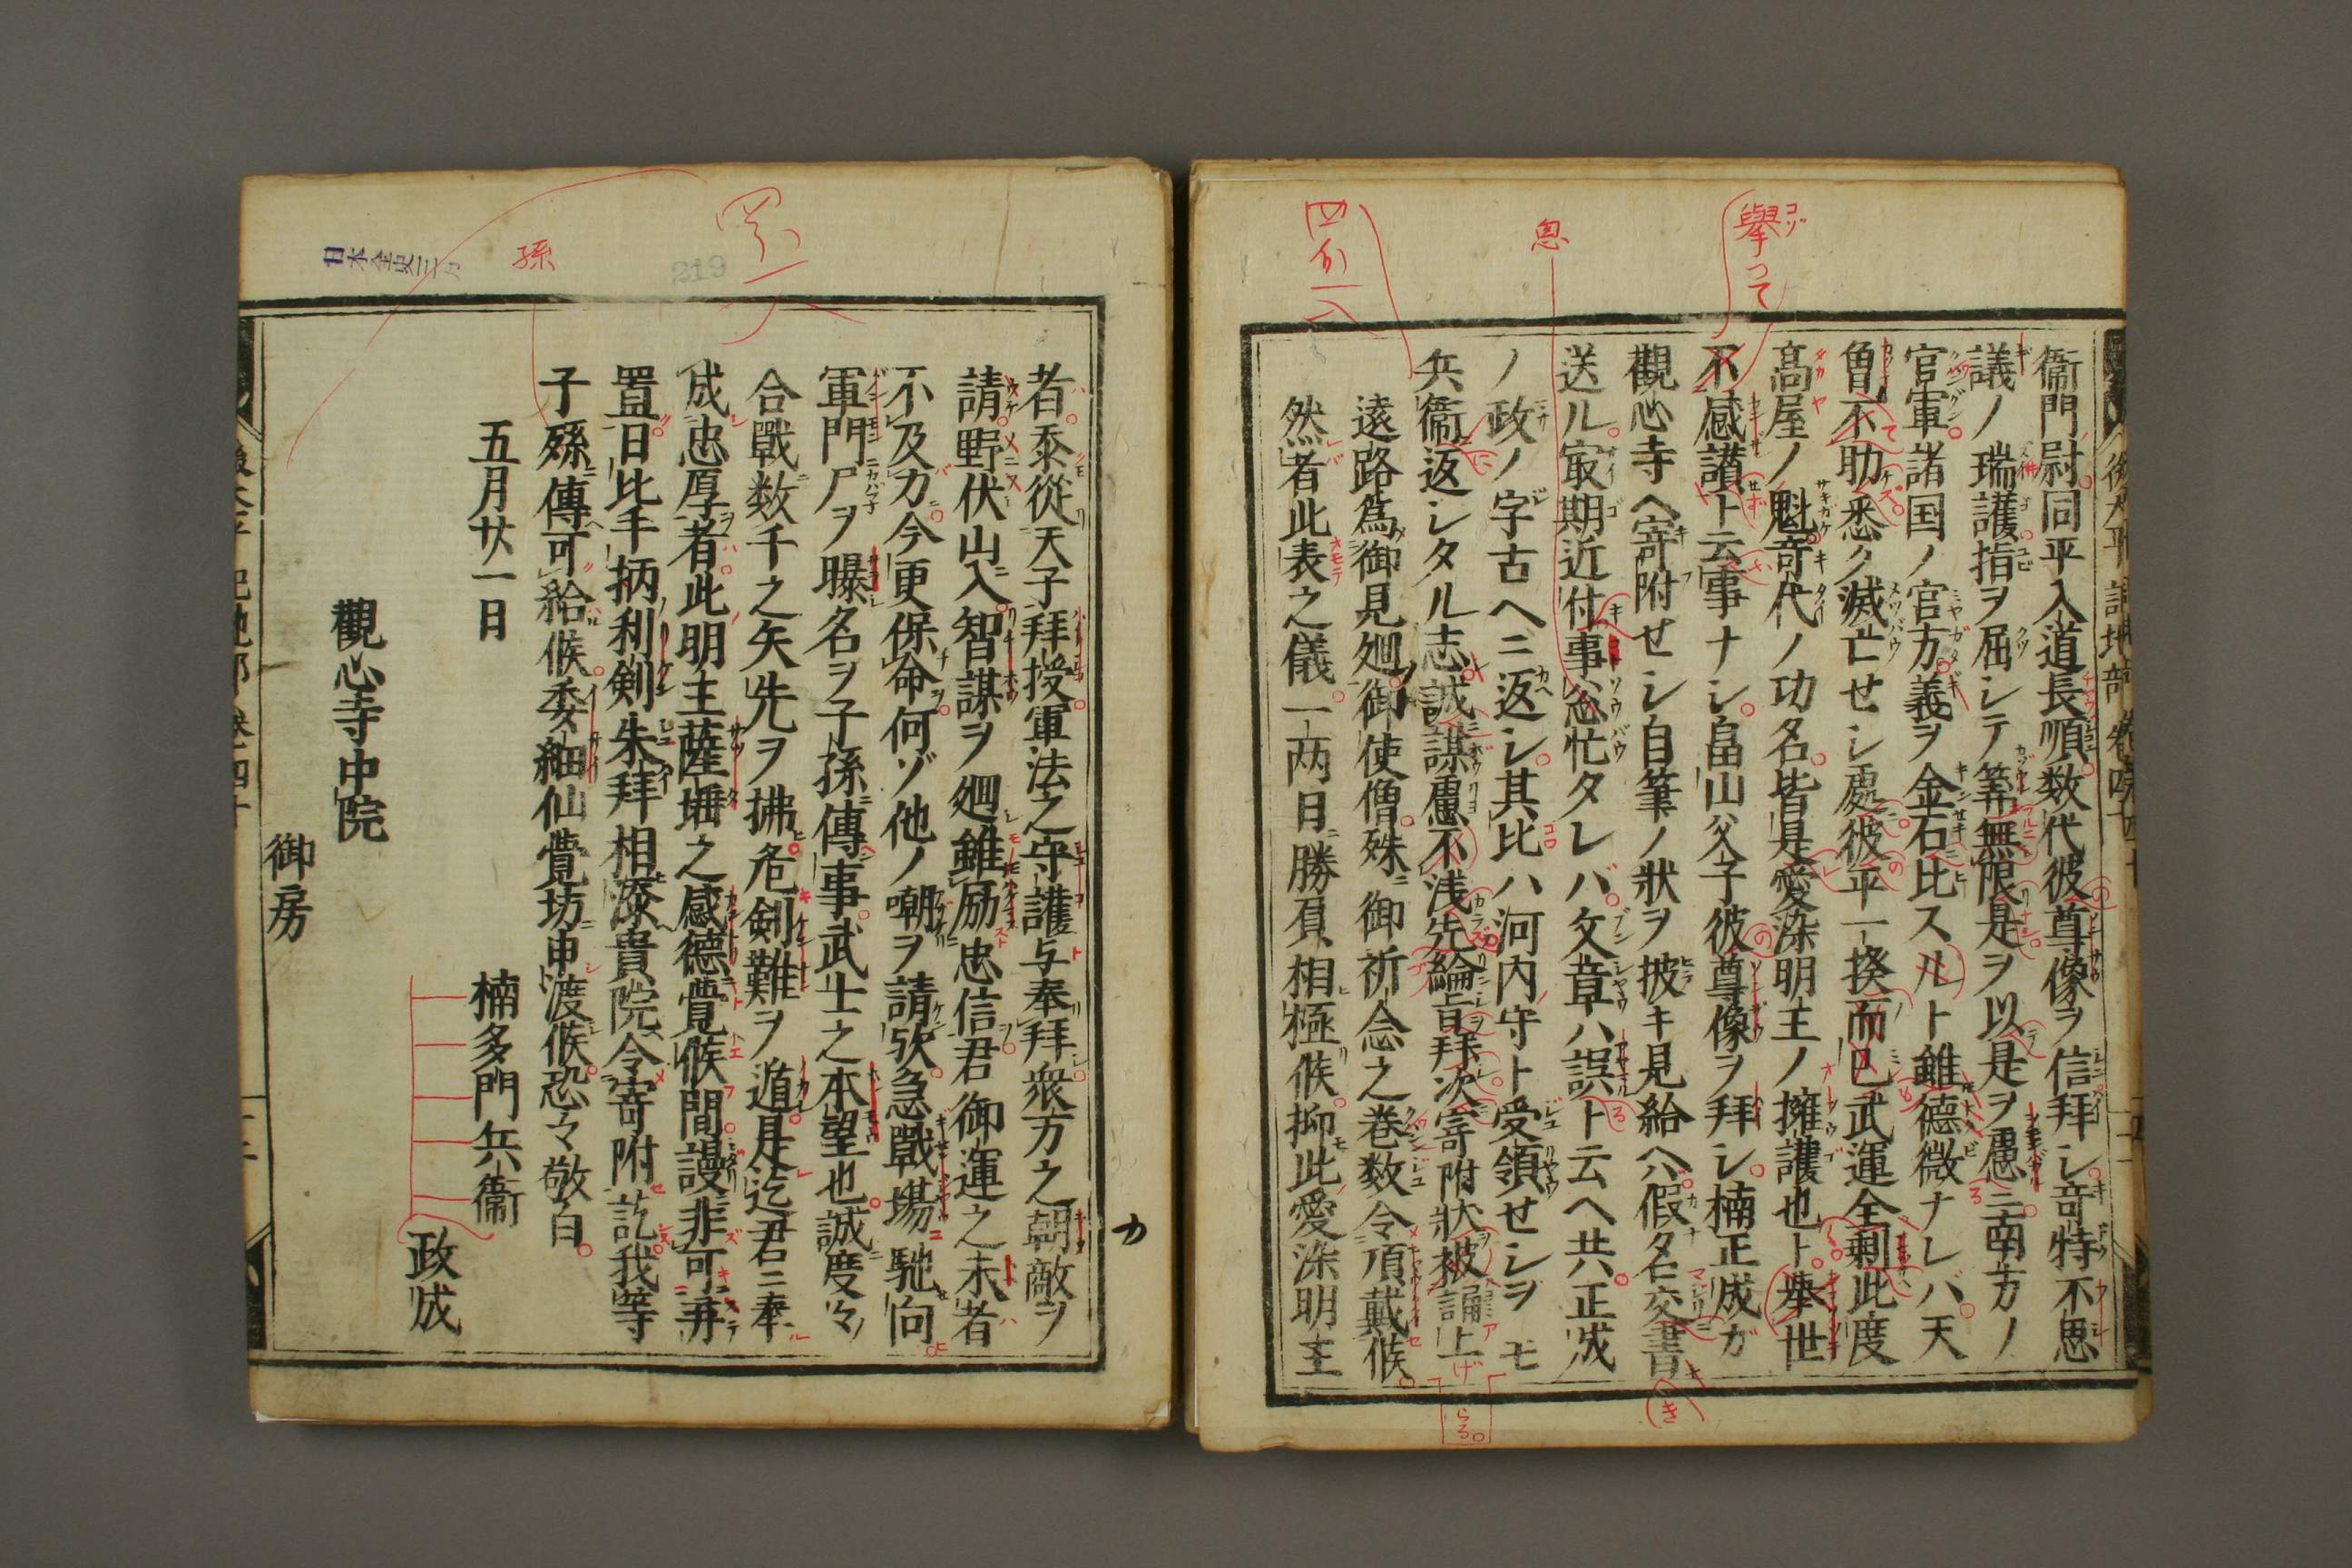 擧って
恩
衞門尉同平入道長順数代彼尊像ヲ信拜シ竒特不思
議ノ瑞護指ヲ屈シテ筭無限是ヲ以是ヲ愚ニ南方ノ
官軍諸国ノ官方義ヲ金石比スルト雖德微ナレバ天
曽不助悉ク滅亡せシ處彼平一揆而已武運全剰此度
髙屋ノ魁竒代ノ功名皆是愛染明王ノ擁護也ト挙世
不感讃ト云事ナシ畠山父子彼尊像ヲ拜シ楠正成ガ
觀心寺ヘ寄附せシ自筆ノ狀ヲ披キ見給ヘバ假名交書
送ル㝡期近付事怱忙タレバ文章ハ誤ト云ヘ共正成
ノ政ノ字古ヘニ返シ其比ハ河内守ト受領せシヲモ
兵衞返シタル志誠謀慮不浅先綸旨拜次寄附狀被誦上
遠路爲御見廻御使僧殊御祈念之巻数令頂戴候
然者此表之儀一两日勝負相極候抑此愛染明主
者忝從天子拜授軍法之守護与奉拜衆方之朝敵ヲ
請野伏山入智謀ヲ廻雖励忠信君御運之末者
不及力今更保命何ゾ他ノ嘲ヲ請欤急戰場馳向
軍門尸ヲ曝名ヲ子孫傳事武士之本望也誠度々
合戰数千之矢先ヲ拂危剱難ヲ遁是迄君ニ奉
成忠厚者此明主薩埵之感德覺候間謾非可弃
置日比手柄利劍朱拜相添貴院令寄附訖我等
子孫傳可給候委細仙覺坊申渡候恐々敬白
五月廿一日
楠多門兵衞
政成
觀心寺中院
御房
孫
219